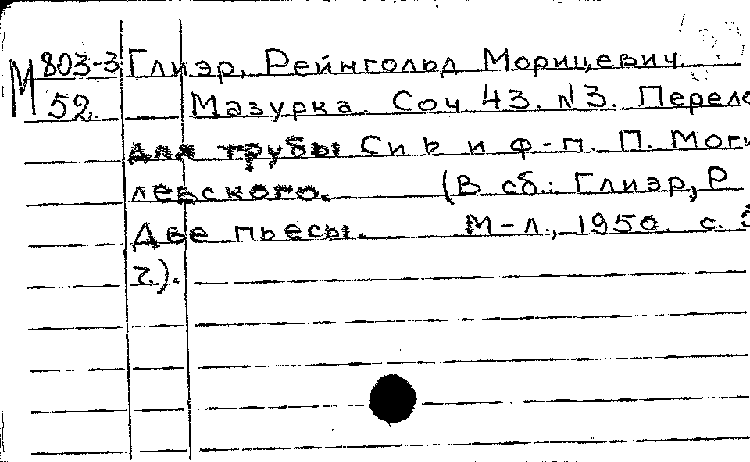 М 803-3 Глиэр, Рейнгольд Морицевич.
52. Мазурка. Соч 43. N3. Перелo
для трубы Си b и ф-п. П. Моги
левского. (В сб.: Глиэр, Р
Две пьесы. М-Л., 1950. с. 3
7.).